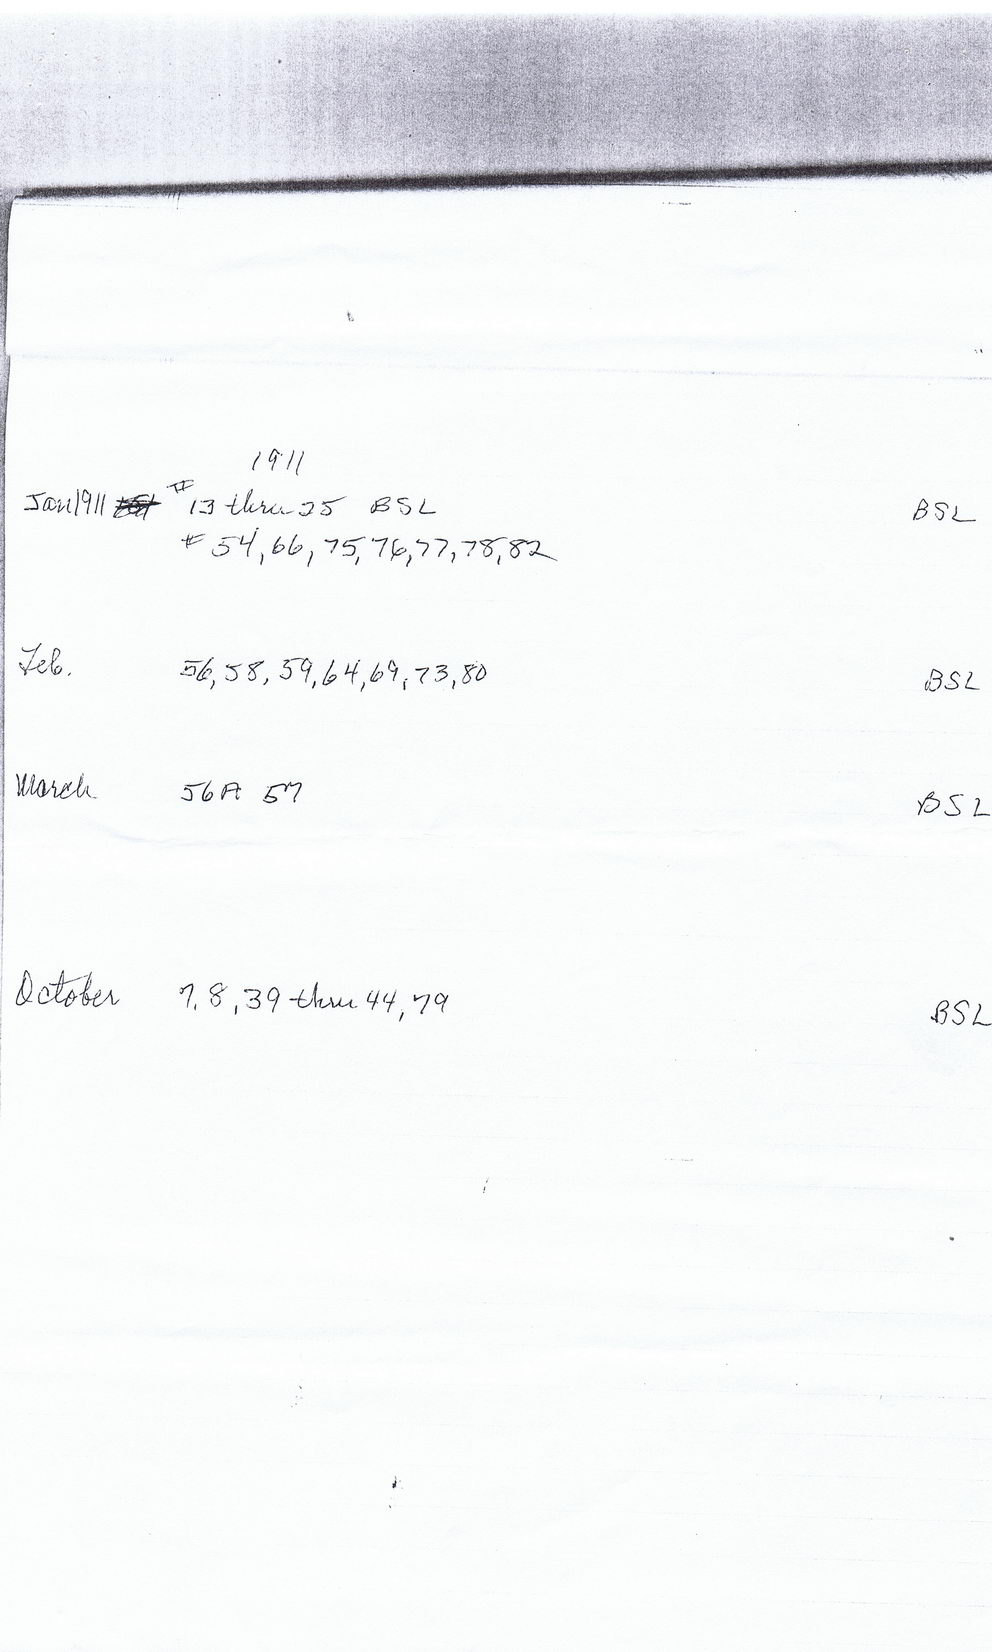 1911
Jan 1911 # 13 thru 25 BSL BSL
# 54, 66, 75, 76, 77, 78, 82
Feb. 56, 58, 59, 64, 69, 73, 80 BSL
March 56A 57 BSL
October 7, 8, 39 thru 44, 79 BSL